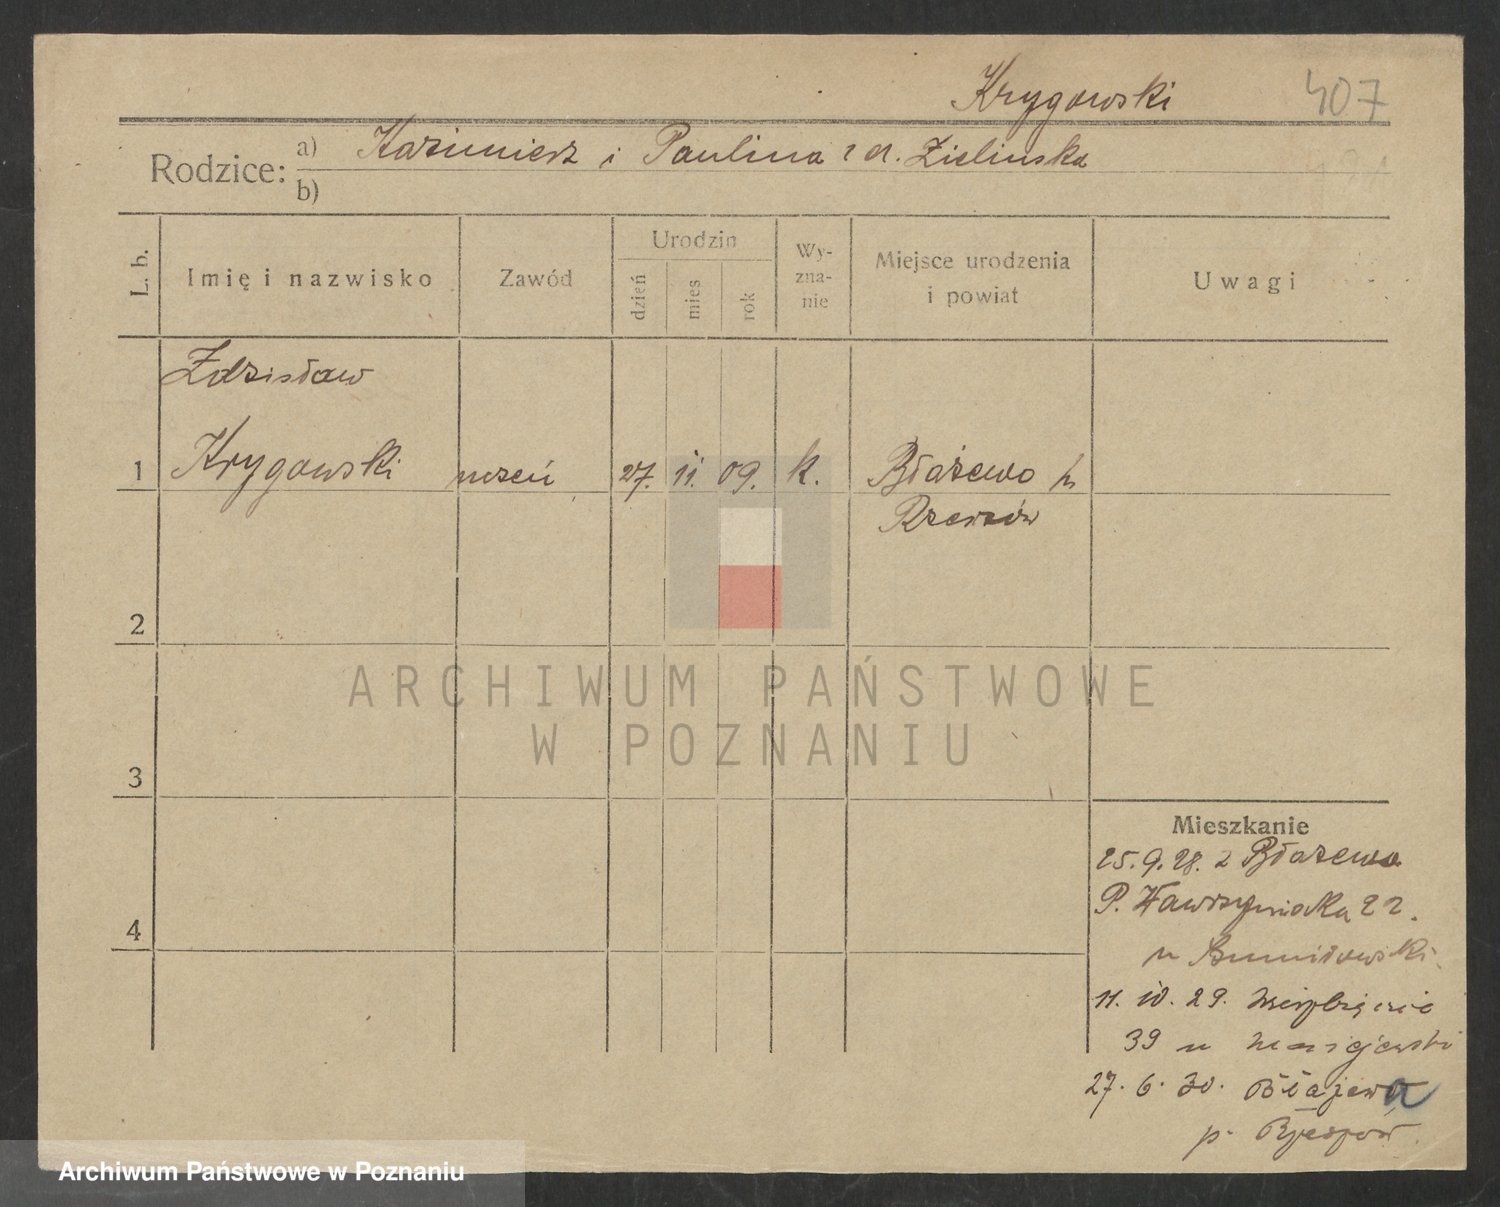 Krygowski 407
Rodzice: a) Kazimierz i Paulina z d. Zielinska
b)
L. b. Imię i nazwisko Zawód Urodzin dzień mies rok Wy-zna-nie Miejsce urodzenia i powiat Uwagi
Zdzisław
1 Krygowski uczeń 27. 11. 09. k. Błażewo p.
Rzeszów
2
ARCHIWUM PAŃSTWOWE
W POZNANIU
3
Mieszkanie
25. 9. 28. z Błażewa
P. Wawrzyniaka 22.
4
u
11. 10. 29.
39 u Maciejewski
27. 6. 30. Błażewa
p. Rzeszów
Archiwum Państwowe w Poznaniu